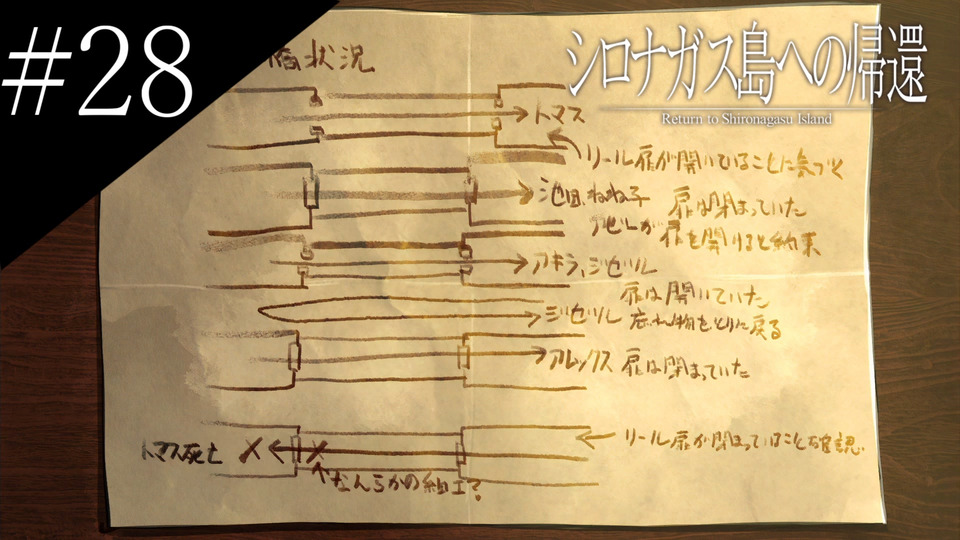 #28
シロナガス島への帰還
Return to Shironagasu Island
状況
トマス
リール扉が開いていることに気づく
池田、ねね子 扉は閉まっていた
アビーが 扉を開けると約束
アキラ、ジゼル
扉は開いていた
ジゼル 忘れ物をとりに戻る
アレックス 扉は閉まっていた
トマス死亡
リール扉が閉まっていること確認.
なんらかの細工?